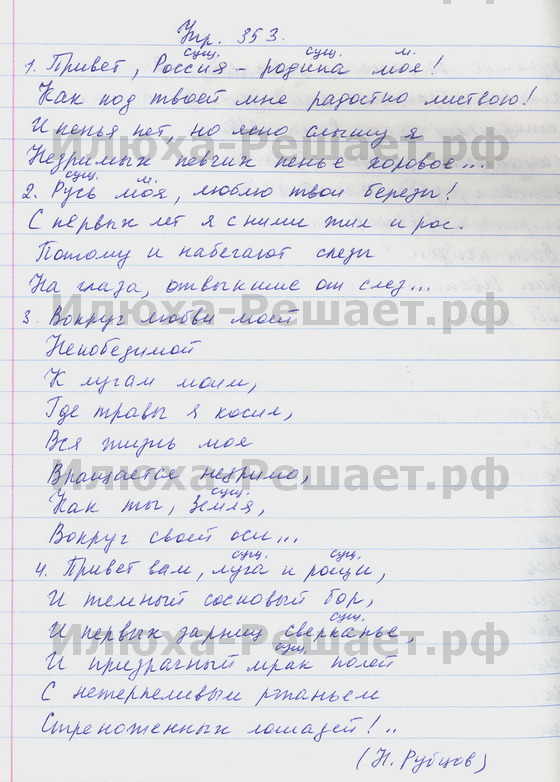 Упр. 353.
сущ. сущ. м.
1. Привет, Россия – родина моя!
Как под твоей мне радостно листвою!
И пенья нет, но ясно слышу я
Незримых певчих пенье хоровое...
сущ. м.
2. Русь моя, люблю твои березы!
С первых лет я с ними жил и рос.
Потому и набегают слезы
На глаза, отвыкшие от слез...
3. Вокруг любви моей
Непобедимой
К лугам моим,
Где травы я косил,
Вся жизнь моя
Вращается незримо,
сущ.
Как ты, Земля,
Вокруг своей оси...
сущ. сущ.
4. Привет вам, луга и рощи,
И темный сосновый бор,
сущ.
И первых зарниц сверканье,
сущ.
И призрачный мрак полей
С нетерпеливым ржаньем
Стреноженных лошадей!..
(Н. Рубцов)
Илюха-Решает.рф
Илюха-Решает.рф
Илюха-Решает.рф
Илюха-Решает.рф